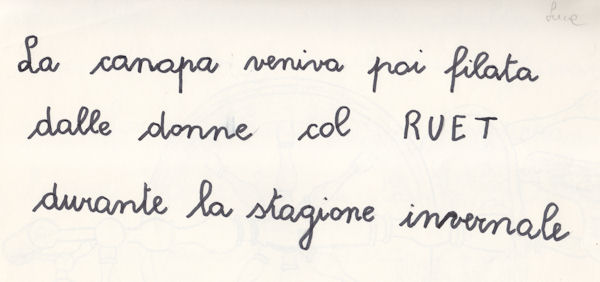 La canapa veniva poi filata
dalle donne col RUET
durante la stagione invernale